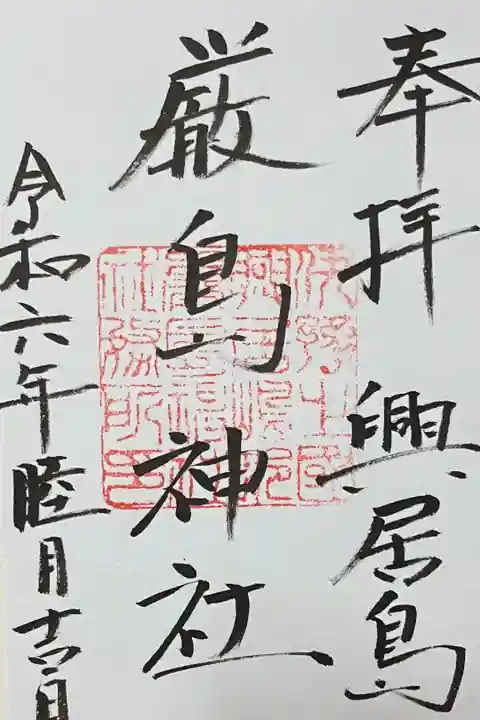 奉拝 興居島
厳島神社
令和六年睦月吉日